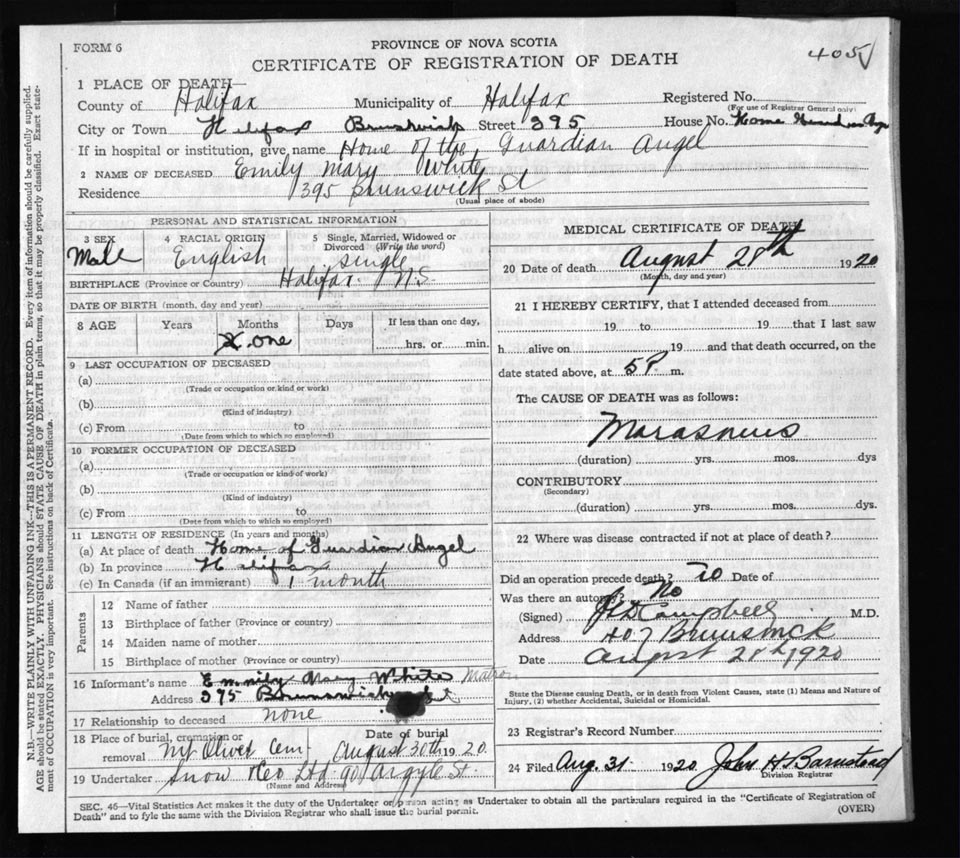 FORM 6
PROVINCE OF NOVA SCOTIA
CERTIFICATE OF REGISTRATION OF DEATH
405
1 PLACE OF DEATH—
County of Halifax Municipality of Halifax Registered No.
(For use of Registrar General only)
City or Town Halifax Brunswick Street 395 House No. Home
If in hospital or institution, give name Home of the Guardian Angel
2 NAME OF DECEASED Emily Mary White
Residence 395 Brunswick St
(Usual place of abode)
PERSONAL AND STATISTICAL INFORMATION
3 SEX 4 RACIAL ORIGIN 5 Single, Married, Widowed or Divorced (Write the word)
Male English single
BIRTHPLACE (Province or Country) Halifax N.S
DATE OF BIRTH (month, day and year)
8 AGE Years Months Days If less than one day,
one hrs. or min.
9 LAST OCCUPATION OF DECEASED
(a)
(Trade or occupation or kind or work)
(b)
(Kind of industry)
(c) From to
(Date from which to which so employed)
10 FORMER OCCUPATION OF DECEASED
(a)
(Trade or occupation or kind of work)
(b)
(Kind of industry)
(c) From to
(Date from which to which so employed)
11 LENGTH OF RESIDENCE (In years and months)
(a) At place of death Home of Guardian Angel
(b) In province Halifax
(c) In Canada (if an immigrant) 1 month
Parents
12 Name of father
13 Birthplace of father (Province or country)
14 Maiden name of mother
15 Birthplace of mother (Province or country)
16 Informant's name Emily Mary White Matron
Address 395 Brunswick St
17 Relationship to deceased none
18 Place of burial, cremation or removal Mt Olivet Cem Date of burial August 30th 1920
19 Undertaker Snow & Co Ltd 90 Argyle St
(Name and Address)
MEDICAL CERTIFICATE OF DEATH
20 Date of death August 28th 1920
(Month, day and year)
21 I HEREBY CERTIFY, that I attended deceased from
19 to 19 that I last saw
h alive on 19 and that death occurred, on the
date stated above, at 5 P. m.
The CAUSE OF DEATH was as follows:
Marasmus
(duration) yrs. mos. dys
CONTRIBUTORY
(Secondary)
(duration) yrs. mos. dys.
22 Where was disease contracted if not at place of death?
Did an operation precede death? no Date of
Was there an autopsy? No
(Signed) Campbell M.D.
Address 407 Brunswick
Date August 28th 1920
State the Disease causing Death, or in death from Violent Causes, state (1) Means and Nature of
Injury, (2) whether Accidental, Suicidal or Homicidal.
23 Registrar's Record Number
24 Filed Aug. 31 1920 John H Barnstead
Division Registrar
SEC. 45—Vital Statistics Act makes it the duty of the Undertaker or person acting as Undertaker to obtain all the particulars required in the "Certificate of Registration of
Death" and to fyle the same with the Division Registrar who shall issue the burial permit.
(OVER)
N.B.—WRITE PLAINLY WITH UNFADING INK—THIS IS A PERMANENT RECORD. Every item of information should be carefully supplied.
AGE should be stated EXACTLY. PHYSICIANS should STATE CAUSE OF DEATH in plain terms, so that it may be properly classified. Exact state-
ment of OCCUPATION is very important. See instructions on back of Certificate.